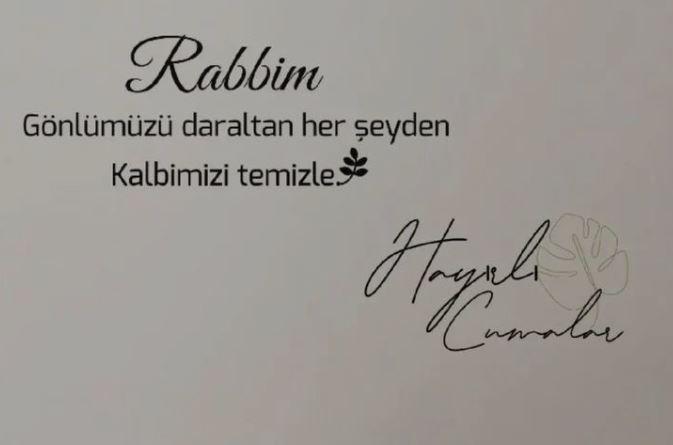 Rabbim
Gönlümüzü daraltan her şeyden
Kalbimizi temizle.
Hayırlı
Cumalar